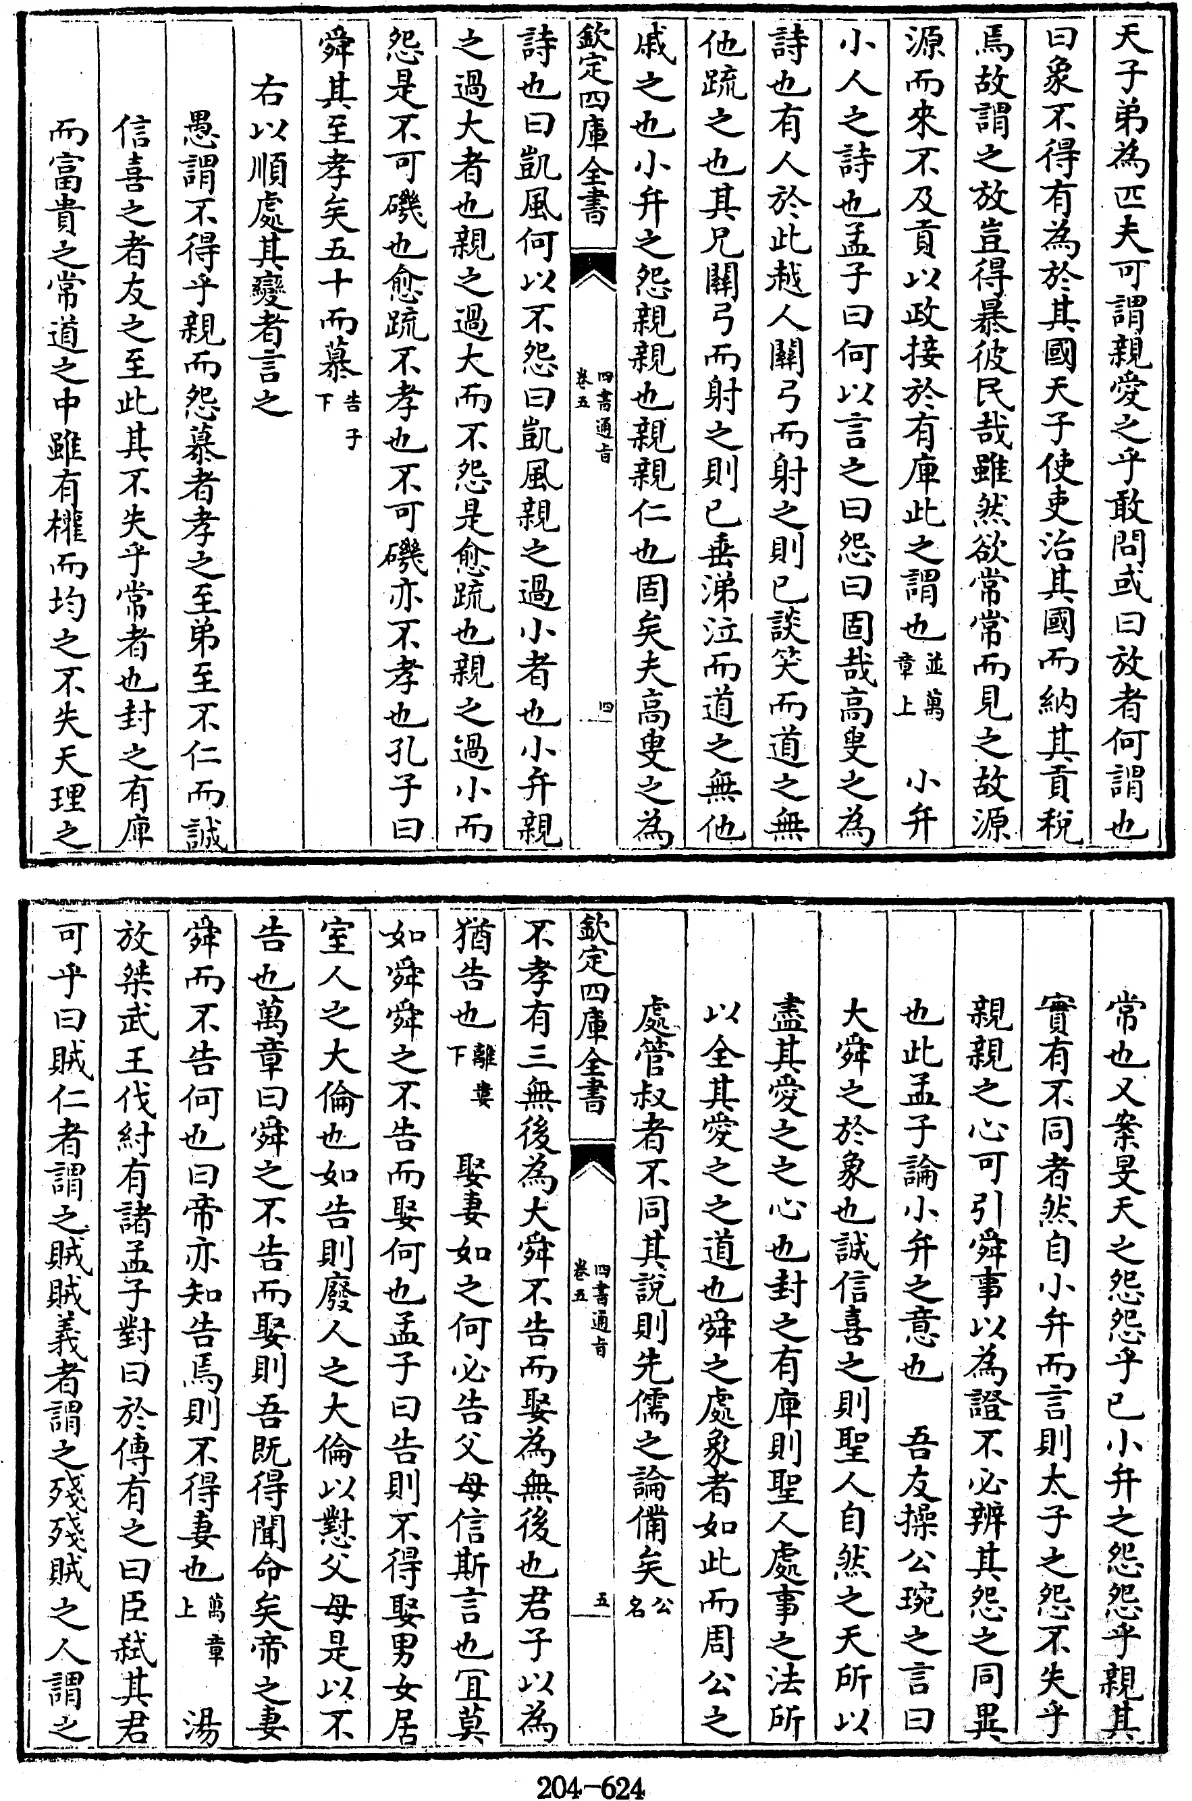 天子弟為匹夫可謂親愛之乎敢問或曰放者何謂也
曰象不得有為於其國天子使吏治其國而納其貢稅
焉故謂之放豈得暴彼民哉雖然欲常常而見之故源
源而來不及貢以政接於有庳此之謂也並萬章上　小弁
小人之詩也孟子曰何以言之曰怨曰固哉高叟之為
詩也有人於此越人關弓而射之則已談笑而道之無
他疏之也其兄關弓而射之則已垂涕泣而道之無他
戚之也小弁之怨親親也親親仁也固矣夫高叟之為
欽定四庫全書　四書通旨卷五　四
詩也曰凱風何以不怨曰凱風親之過小者也小弁親
之過大者也親之過大而不怨是愈疏也親之過小而
怨是不可磯也愈疏不孝也不可磯亦不孝也孔子曰
舜其至孝矣五十而慕告子下
右以順處其變者言之
愚謂不得乎親而怨慕者孝之至弟至不仁而誠
信喜之者友之至此其不失乎常者也封之有庳
而富貴之常道之中雖有權而均之不失天理之
常也又案旻天之怨怨乎已小弁之怨怨乎親其
實有不同者然自小弁而言則太子之怨不失乎
親親之心可引舜事以為證不必辨其怨之同異
也此孟子論小弁之意也　吾友操公琬之言曰
大舜之於象也誠信喜之則聖人自然之天所以
盡其愛之之心也封之有庳則聖人處事之法所
以全其愛之之道也舜之處象者如此而周公之
處管叔者不同其說則先儒之論備矣公名
欽定四庫全書　四書通旨卷五　五
不孝有三無後為大舜不告而娶為無後也君子以為
猶告也離婁下　娶妻如之何必告父母信斯言也宜莫
如舜舜之不告而娶何也孟子曰告則不得娶男女居
室人之大倫也如告則廢人之大倫以懟父母是以不
告也萬章曰舜之不告而娶則吾既得聞命矣帝之妻
舜而不告何也曰帝亦知告焉則不得妻也萬章上　湯
放桀武王伐紂有諸孟子對曰於傳有之曰臣弒其君
可乎曰賊仁者謂之賊賊義者謂之殘殘賊之人謂之
204-624